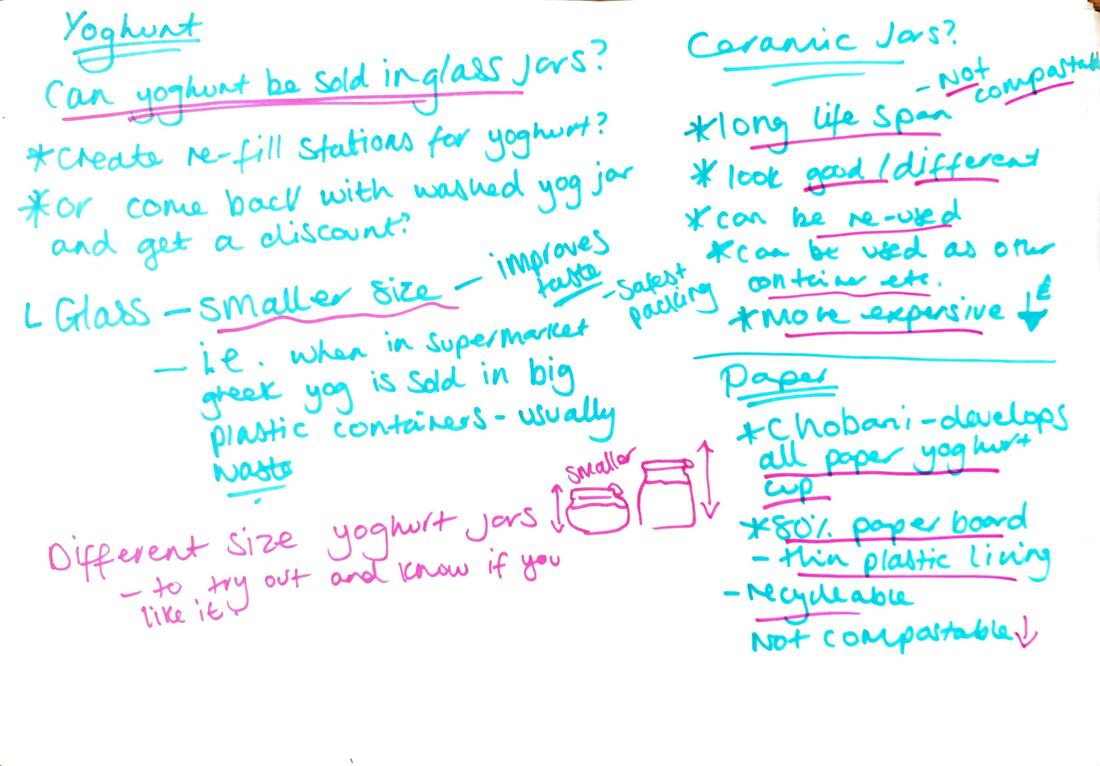 Yoghurt
Can yoghurt be sold in glass jars?
*create re-fill stations for yoghurt?
*or come back with washed yog jar
and get a discount?
L Glass - smaller size - improves
taste
- safest
packing
- i.e. when in supermarket
greek yog is sold in big
plastic containers - usually
waste
Different size yoghurt jars
- to try out and know if you
like it.
smaller
Ceramic Jars?
- Not
compostable
*long life span
*look good/different
*can be re-used
*can be used as other
container etc.
*More expensive £
Paper
*Chobani - develops
all paper yoghurt
cup
*80% paper board
- thin plastic living
- recycleable
Not compostable